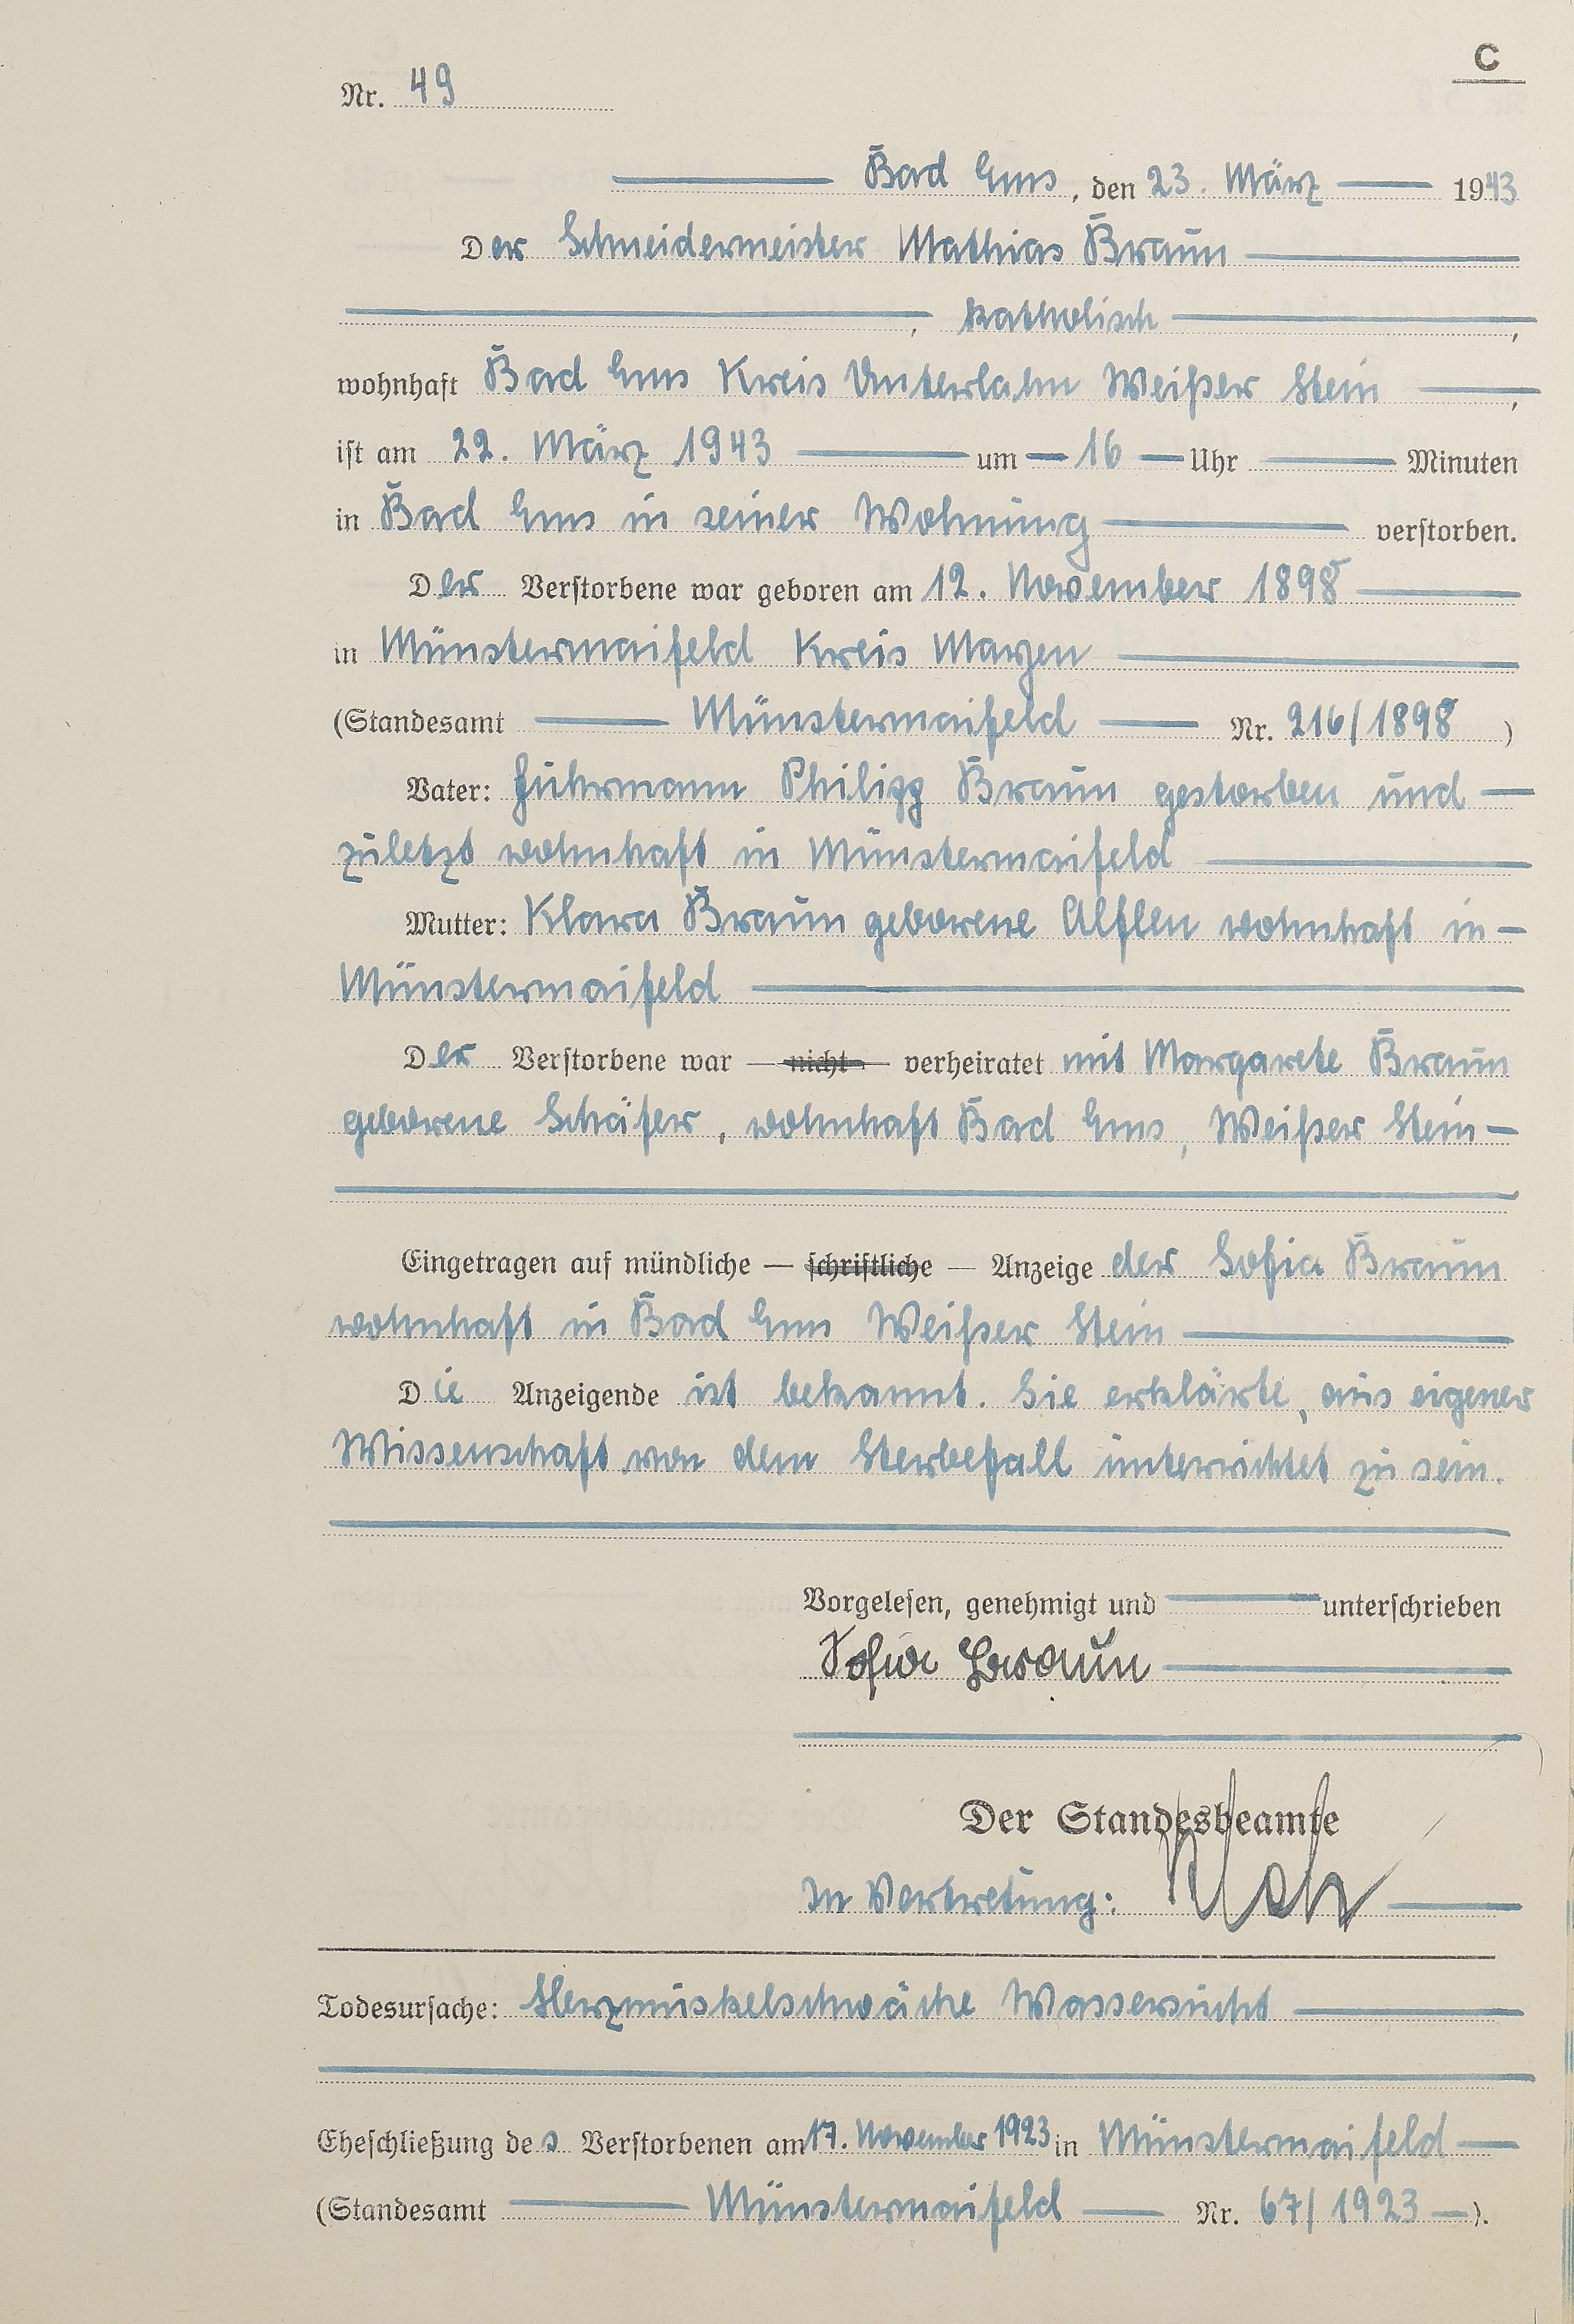 C
Nr. 49
Bad Ems, den 23. März 1943
Der Schneidermeister Mathias Braun
, katholisch ,
wohnhaft Bad Ems Kreis Unterlahn Weißer Stein ,
ist am 22. März 1943 um 16 Uhr Minuten
in Bad Ems in seiner Wohnung verstorben.
Der Verstorbene war geboren am 12. November 1898
in Münstermaifeld Kreis Mayen
(Standesamt Münstermaifeld Nr. 216/1898 )
Vater: Fuhrmann Philipp Braun gestorben und
zuletzt wohnhaft in Münstermaifeld
Mutter: Klara Braun geborene Alflen wohnhaft in
Münstermaifeld
Der Verstorbene war — nicht — verheiratet mit Margarete Braun
geborene Schäfer, wohnhaft Bad Ems, Weißer Stein
Eingetragen auf mündliche — schriftliche — Anzeige der Sofia Braun
wohnhaft in Bad Ems Weißer Stein
Die Anzeigende ist bekannt. Sie erklärte, aus eigener
Wissenschaft von dem Sterbefall unterrichtet zu sein.
Vorgelesen, genehmigt und unterschrieben
Sofia Braun
Der Standesbeamte
In Vertretung:
Todesursache: Herzmuskelschwäche Wassersucht
Eheschließung des Verstorbenen am 17. November 1923 in Münstermaifeld
(Standesamt Münstermaifeld Nr. 67/1923 ).